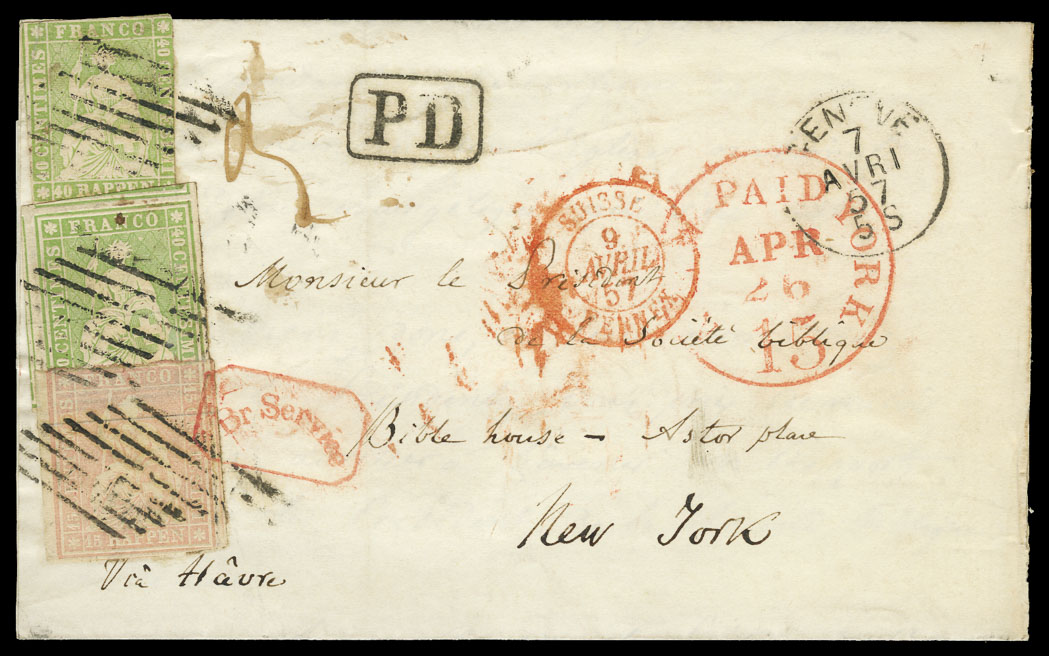 FRANCO
40 CENTIMES
40 RAPPEN
FRANCO
40 CENTIMES
40 CENTESIMI
FRANCO
15 RAPPEN
PD
GENÈVE
7
AVRI
57
5 S
SUISSE
9
AVRIL
57
FERNEX
YORK
PAID
APR
26
15
Br Service
Monsieur le Président
de la Société biblique
Bible house - Astor place
New York
Viâ Hâvre